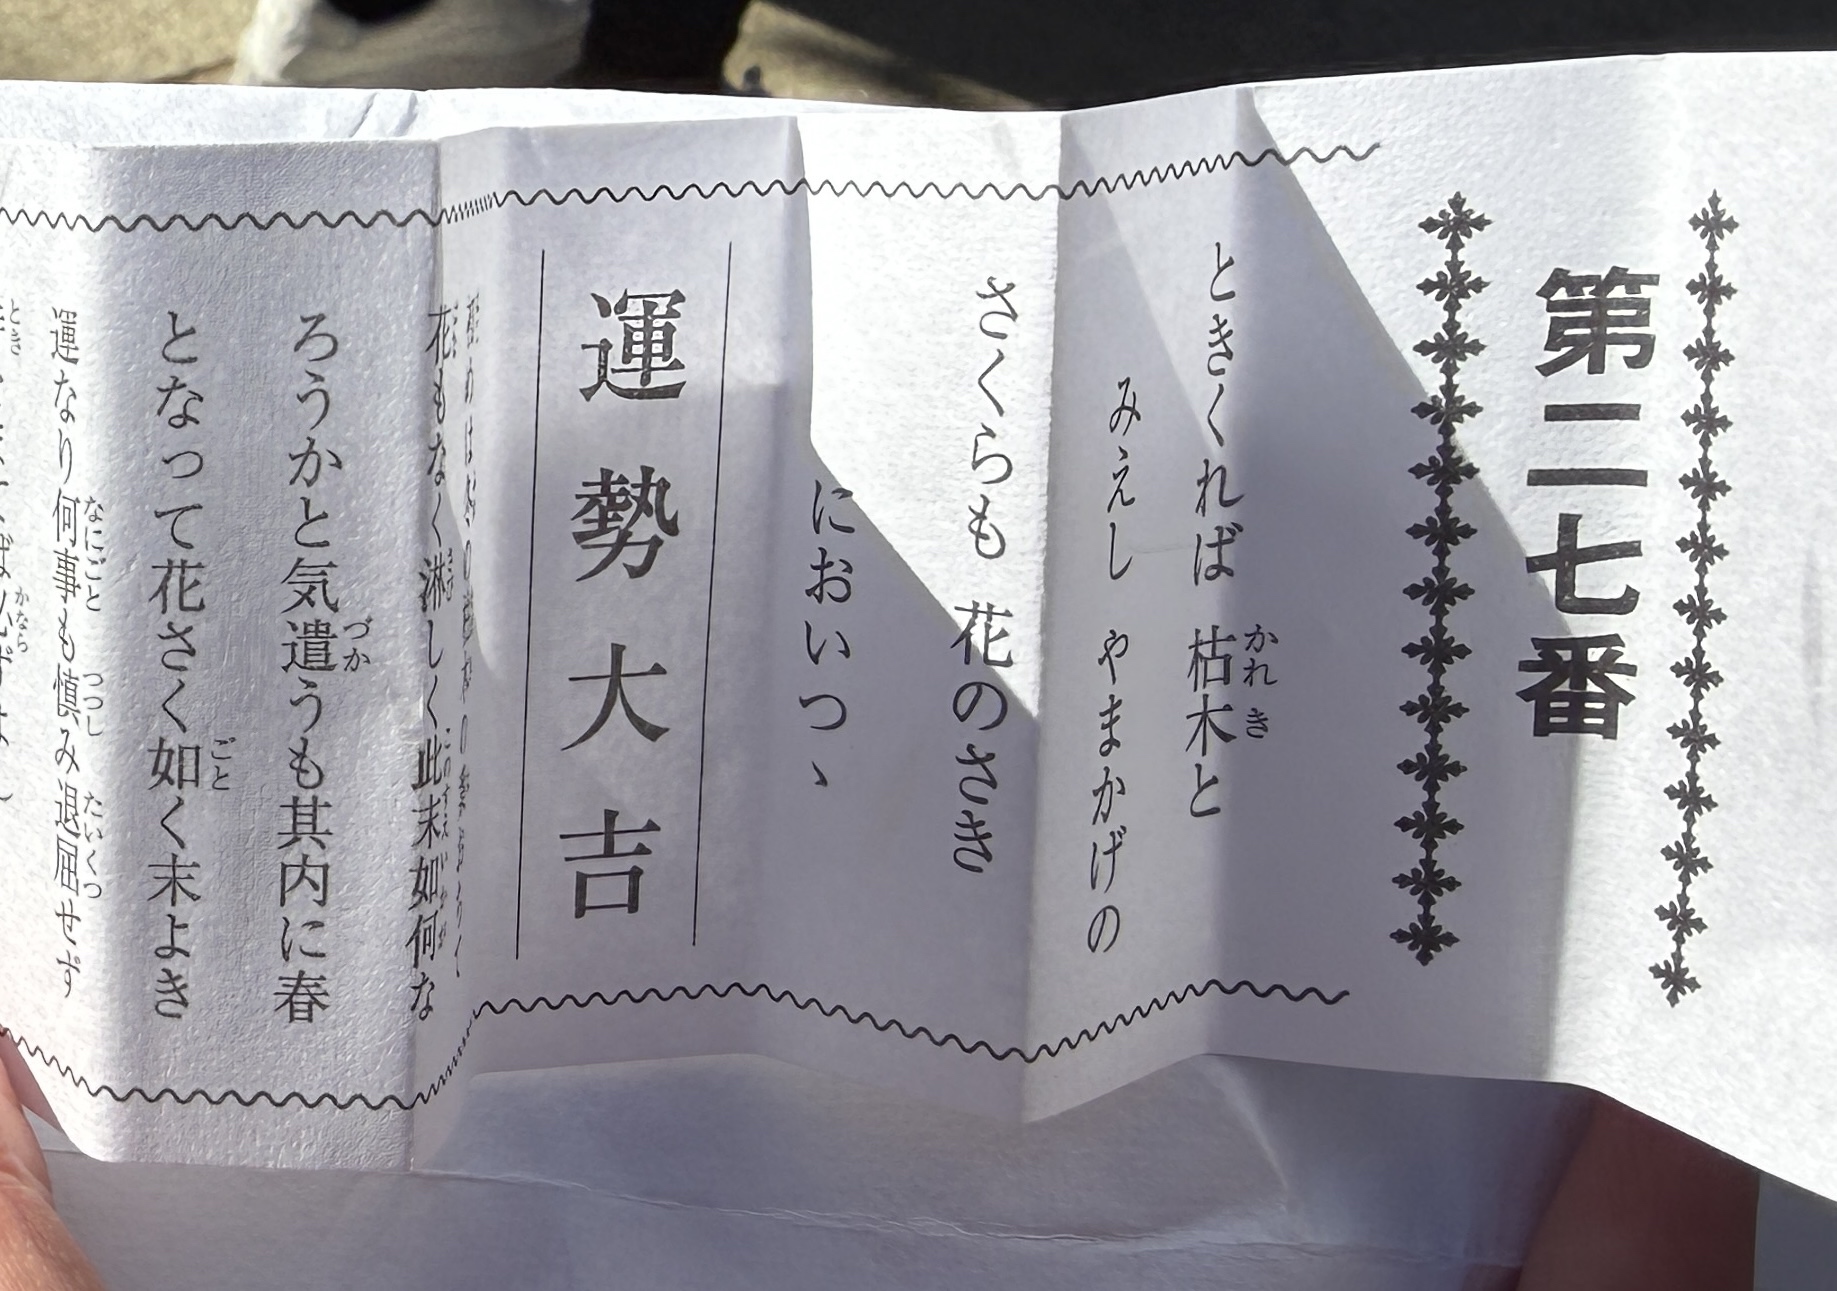 第二七番
ときくれば 枯木と
みえし やまかげの
さくらも 花のさき
においつゝ
運勢大吉
花もなく淋しく此末如何な
ろうかと気遣うも其内に春
となって花さく如く末よき
運なり何事も慎み退屈せず